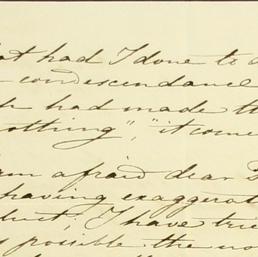 had I done to
condescendance
had made
othing", "it come
afraid dear
having exaggerat
but, I have trie
possible the